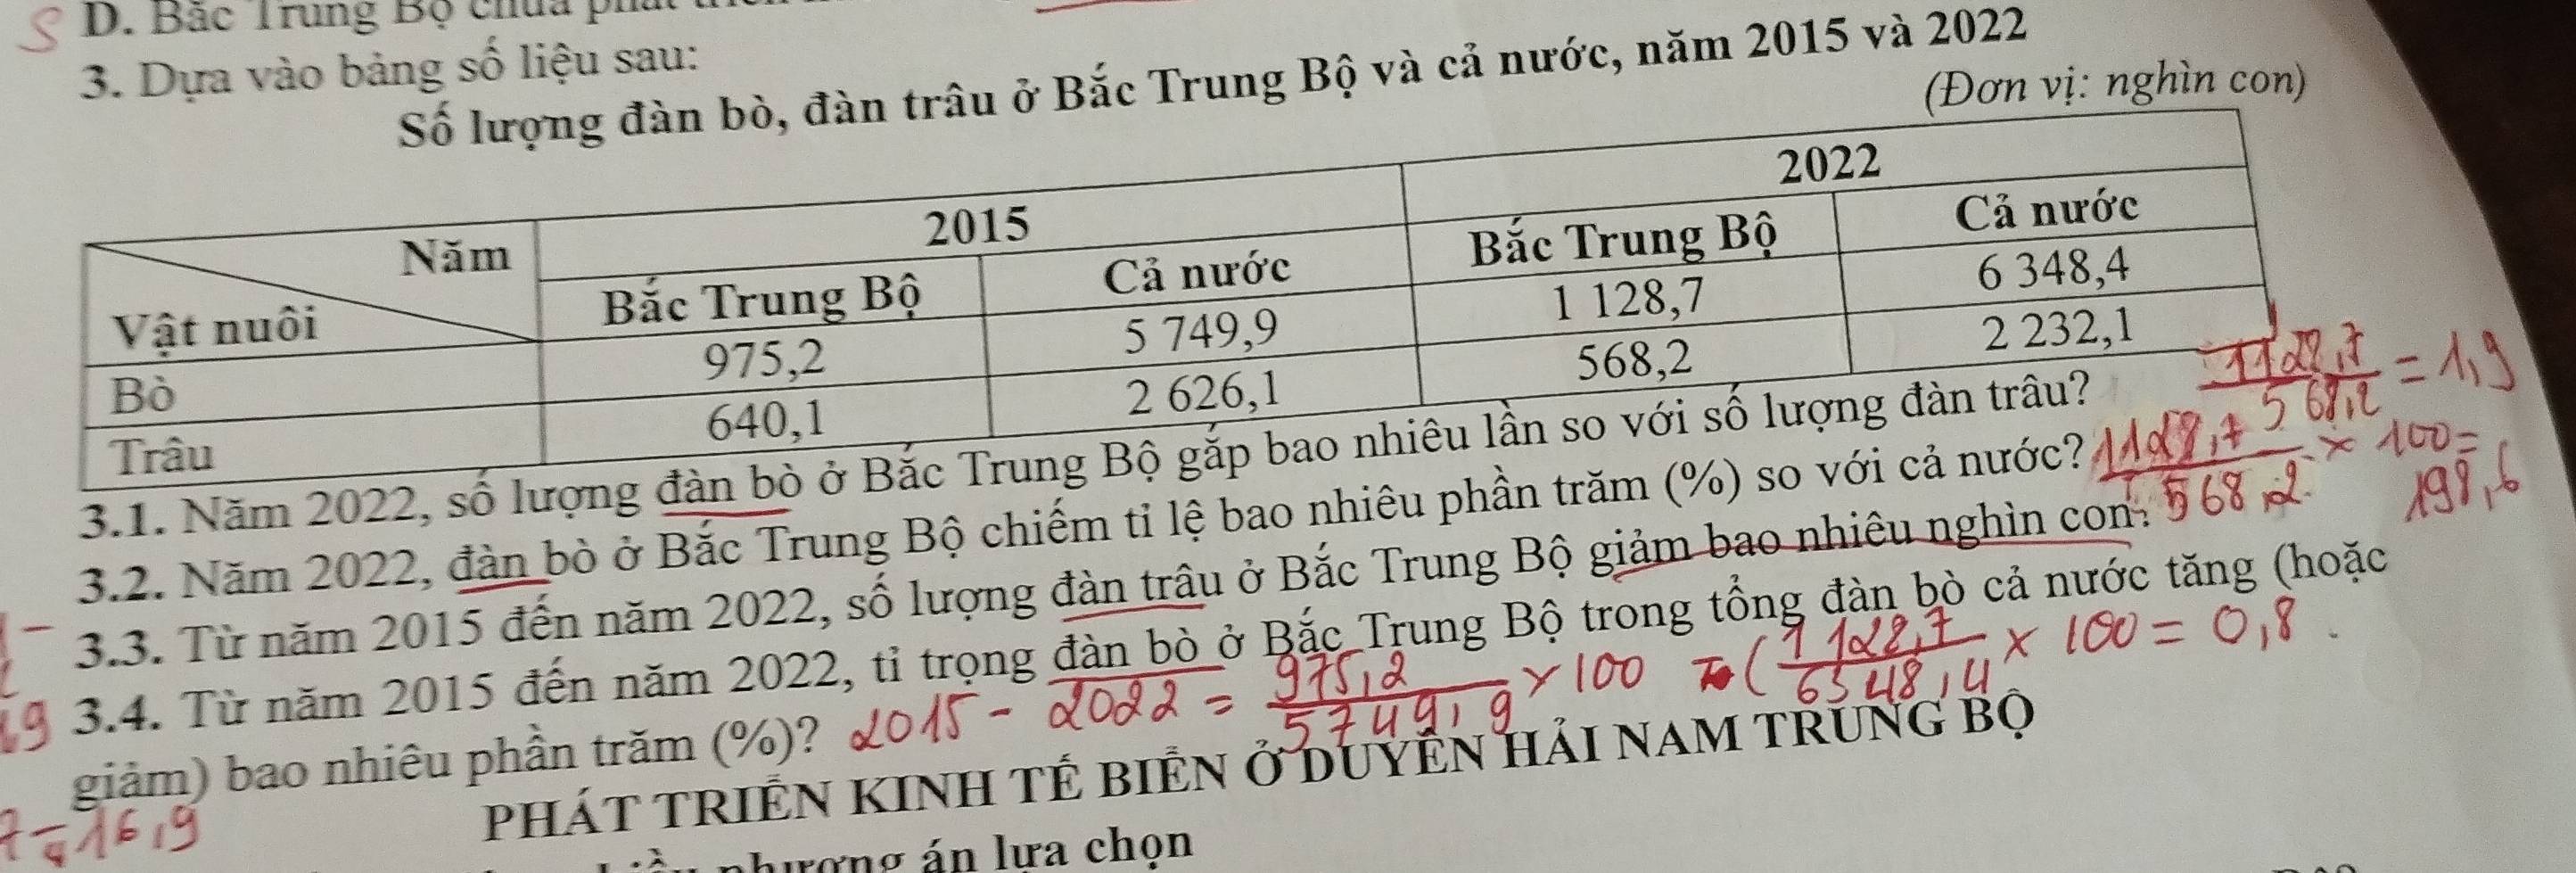 D. Bắc Trung Bộ chưa
3. Dựa vào bảng số liệu sau:
Số lượng đàn bò, đàn trâu ở Bắc Trung Bộ và cả nước, năm 2015 và 2022
(Đơn vị: nghìn con)
Năm 2015 2022
Vật nuôi Bắc Trung Bộ Cả nước Bắc Trung Bộ Cả nước
Bò 975,2 5 749,9 1 128,7 6 348,4
Trâu 640,1 2 626,1 568,2 2 232,1
3.1. Năm 2022, số lượng đàn bò ở Bắc Trung Bộ gấp bao nhiêu lần so với số lượng đàn trâu?
1128,7 / 568,2 = 1,9
3.2. Năm 2022, đàn bò ở Bắc Trung Bộ chiếm tỉ lệ bao nhiêu phần trăm (%) so với cả nước?
1128,7 / 568,2 × 100 = 198,6
3.3. Từ năm 2015 đến năm 2022, số lượng đàn trâu ở Bắc Trung Bộ giảm bao nhiêu nghìn con?
3.4. Từ năm 2015 đến năm 2022, tỉ trọng đàn bò ở Bắc Trung Bộ trong tổng đàn bò cả nước tăng (hoặc
giảm) bao nhiêu phần trăm (%)?
2015 - 2022 = 975,2 / 5749,9 × 100 - (1128,7 / 6348,4 × 100 = 0,8
16,9
PHÁT TRIỂN KINH TẾ BIỂN Ở DUYÊN HẢI NAM TRUNG BỘ
phương án lựa chọn